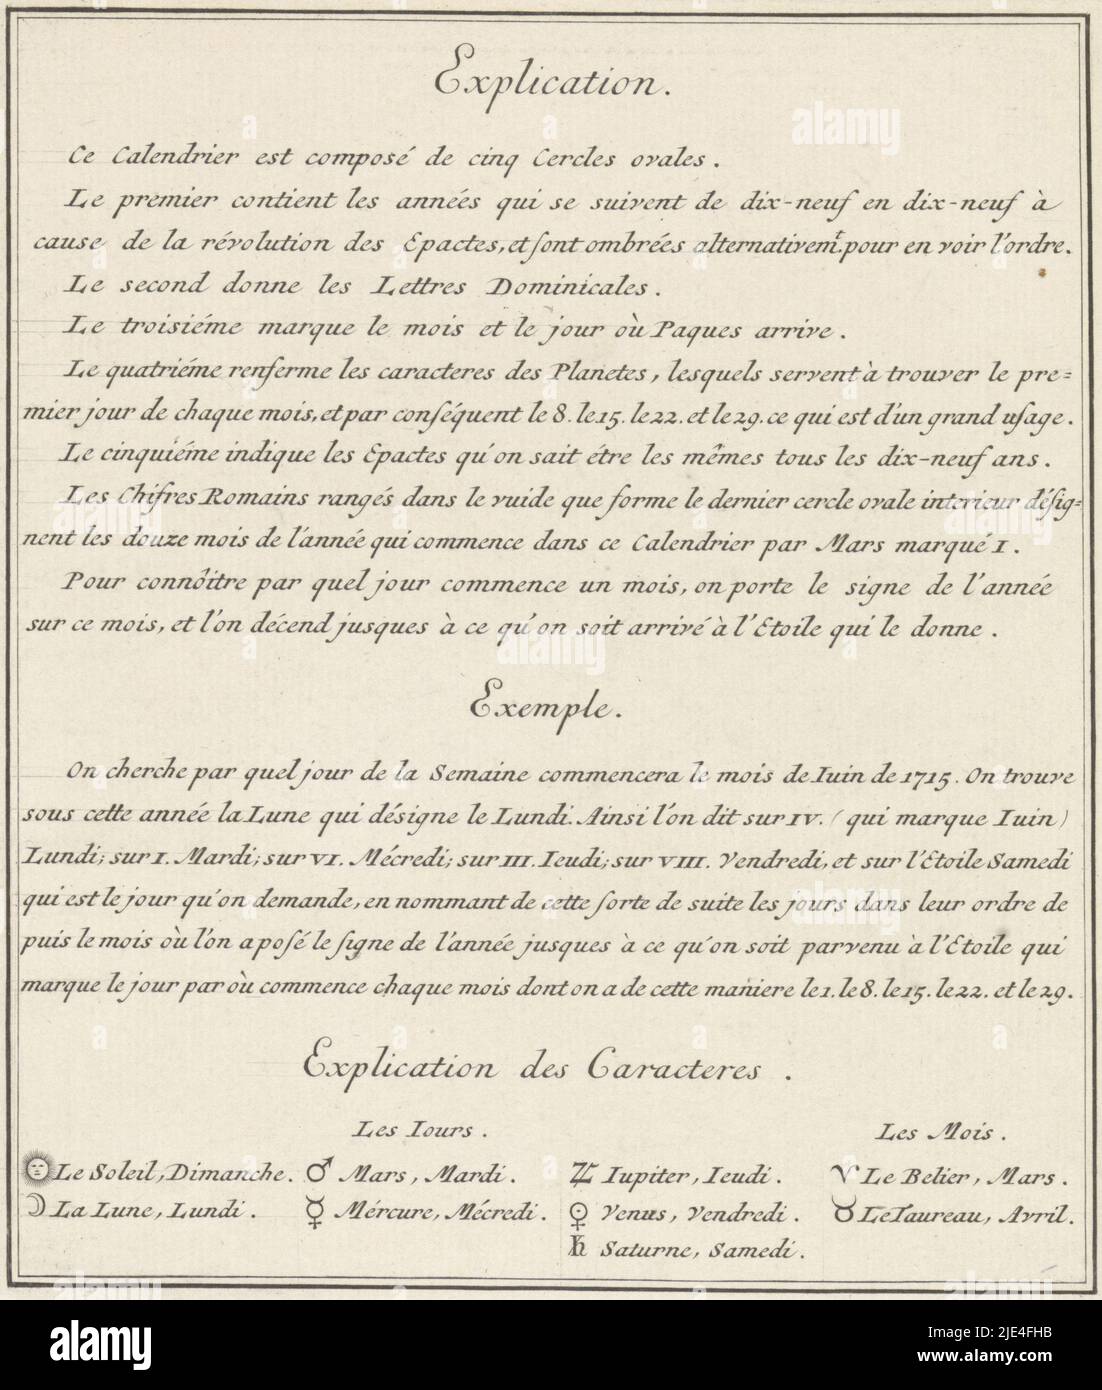 Explication.
Ce Calendrier est composé de cinq Cercles ovales.
Le premier contient les années qui se suivent de dix-neuf en dix-neuf à
cause de la révolution des Epactes, et sont ombrées alternativemt. pour en voir l'ordre.
Le second donne les Lettres Dominicales.
Le troisiéme marque le mois et le jour où Paques arrive.
Le quatriéme renferme les caracteres des Planetes, lesquels servent à trouver le pre=
mier jour de chaque mois, et par conséquent le 8. le 15. le 22. et le 29. ce qui est d'un grand usage.
Le cinquiéme indique les Epactes qu'on sait étre les mêmes tous les dix-neuf ans.
Les Chifres Romains rangés dans le vuide que forme le dernier cercle ovale interieur désig=
nent les douze mois de l'année qui commence dans ce Calendrier par Mars marqué I.
Pour connôitre par quel jour commence un mois, on porte le signe de l'année
sur ce mois, et l'on décend jusques à ce qu'on soit arrivé à l'Etoile qui le donne.
Exemple.
On cherche par quel jour de la Semaine commencera le mois de Iuin de 1715. On trouve
sous cette année la Lune qui désigne le Lundi. Ainsi l'on dit sur IV. (qui marque Iuin)
Lundi; sur I. Mardi; sur VI. Mécredi; sur III. Ieudi; sur VIII. Vendredi, et sur l'Etoile Samedi
qui est le jour qu'on demande, en nommant de cette sorte de suite les jours dans leur ordre de
puis le mois où l'on a posé le signe de l'année jusques à ce qu'on soit parvenu à l'Etoile qui
marque le jour par où commence chaque mois dont on a de cette maniere le 1. le 8. le 15. le 22. et le 29.
Explication des Caracteres.
Les Iours.
Les Mois.
☉ Le Soleil, Dimanche. ♂ Mars, Mardi. ♃ Iupiter, Ieudi. ♈ Le Belier, Mars.
☽ La Lune, Lundi. ☿ Mércure, Mécredi. ♀ Venus, Vendredi. ♉ Le Taureau, Avril.
♄ Saturne, Samedi.
alamy
Image ID: 2JE4FHB
www.alamy.com